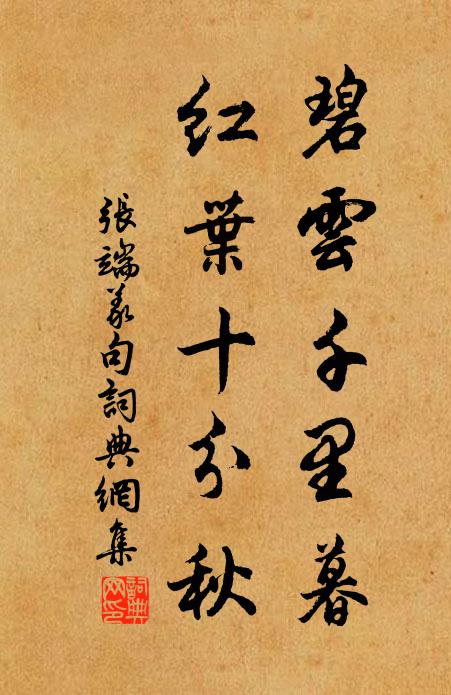 碧雲千里暮
紅葉十分秋
張端義句詞典網集
詞典网印